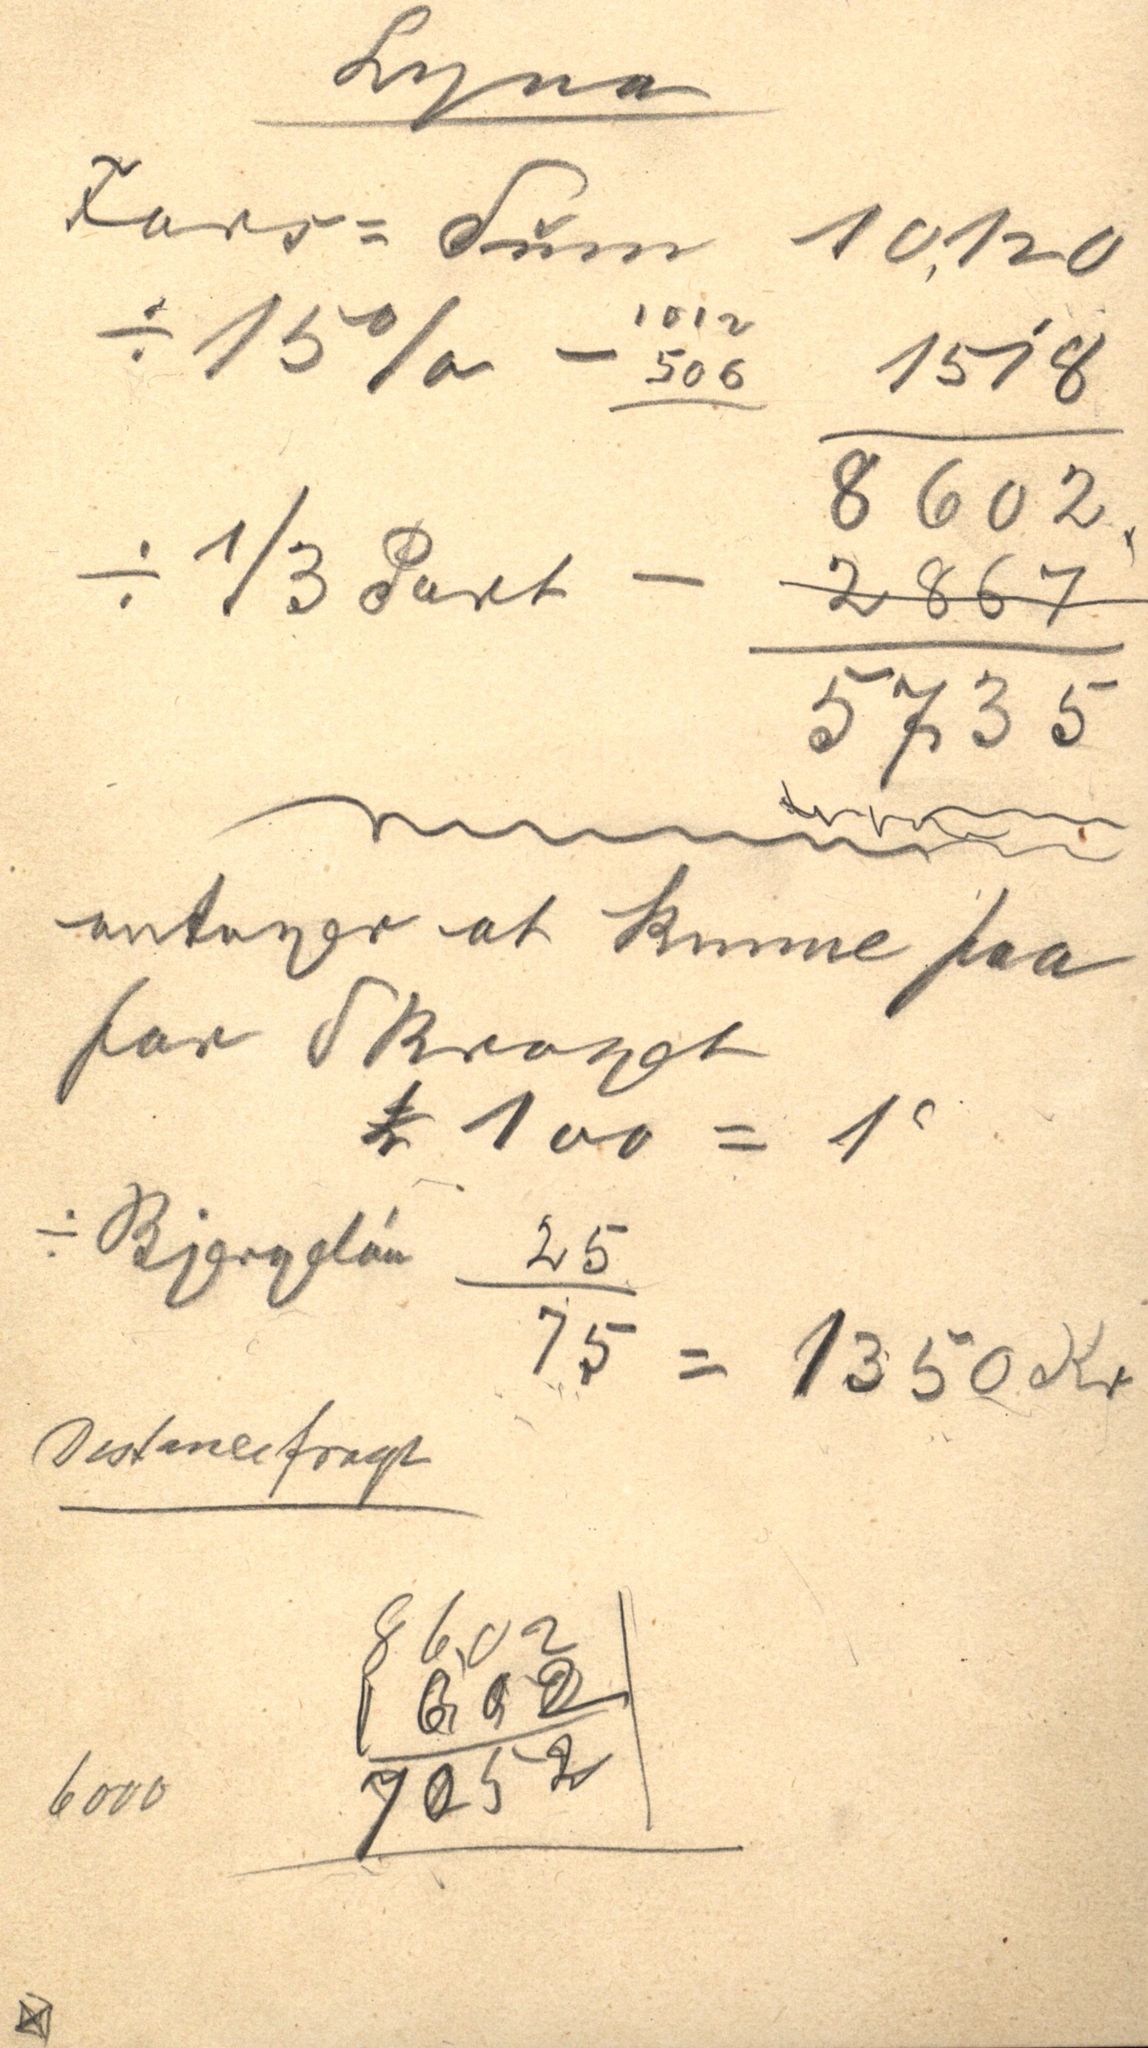 Lyna
Tars= Sum 10,120
÷ 15% – 1012
506 1518
8602
÷ 1/3 Part – 2867
5735
antager at kunne faa
for Skroget
£ 100 = 1
÷ Bjergelön 25
75 = 1350 Kr
Distancefragt
8602
6000 7052